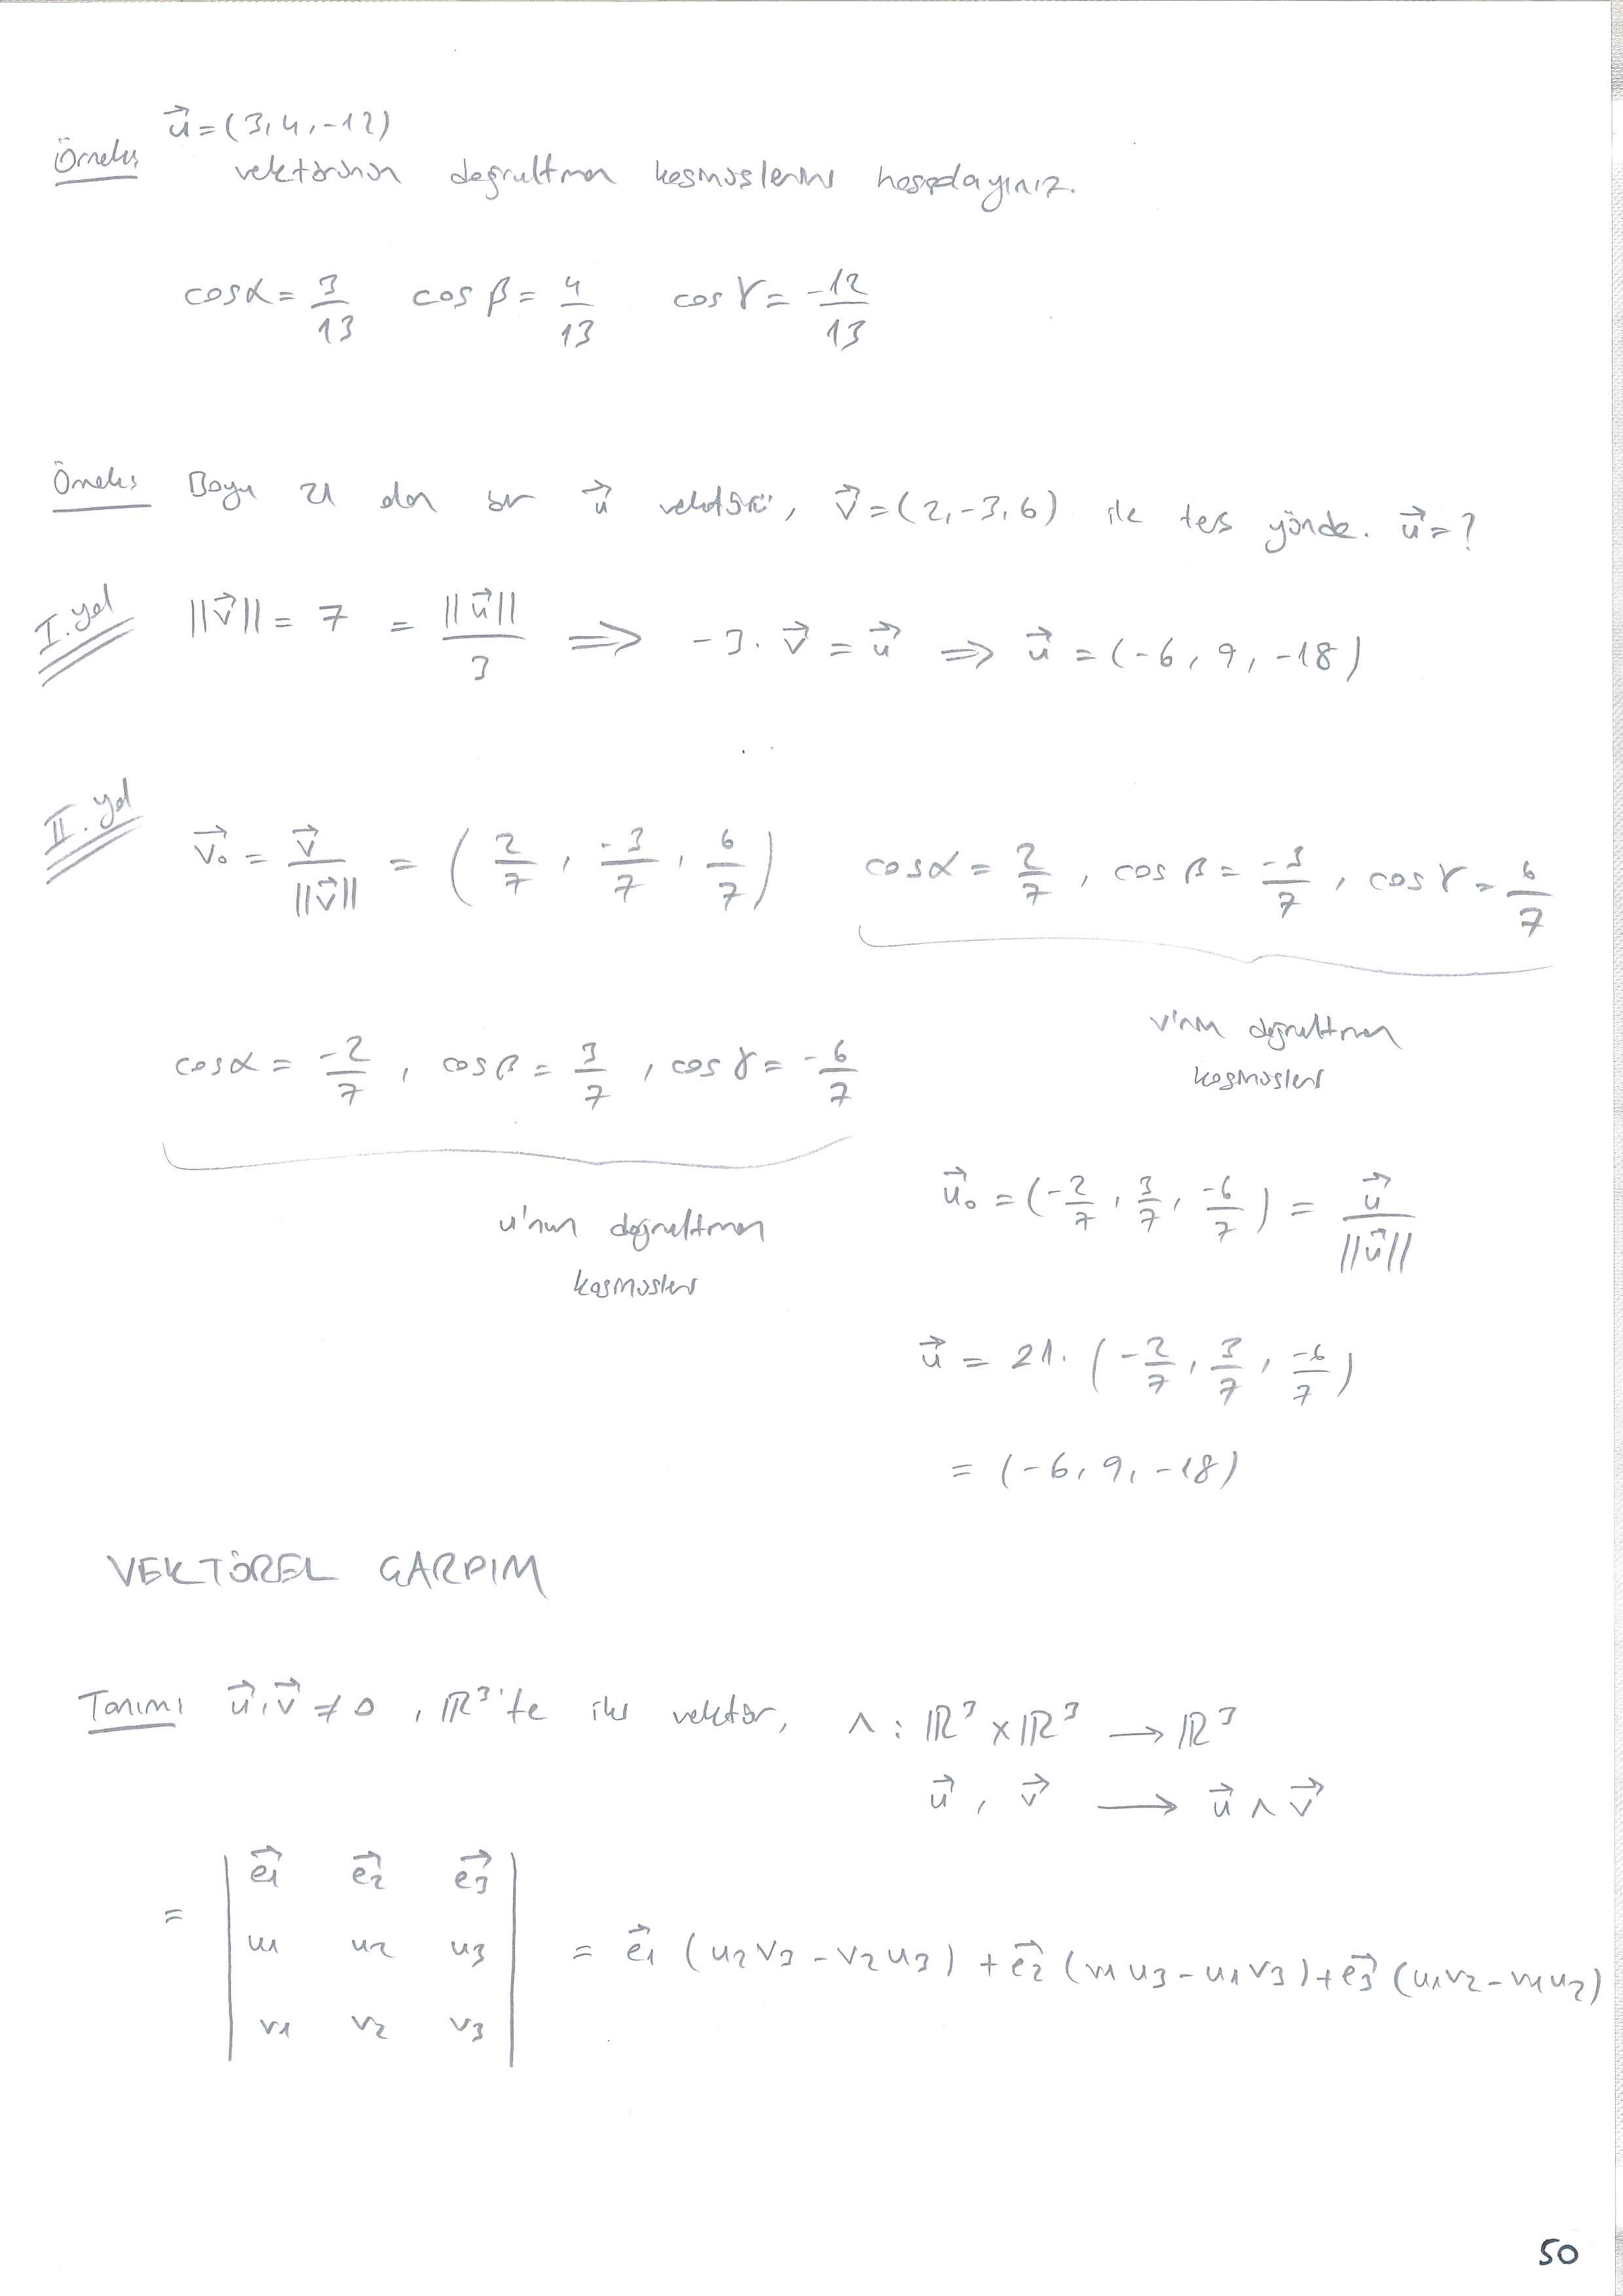 Örnek: u⃗ = (3, 4, -12)
vektörünün doğrultman kosinüslerini hesaplayınız.
cosα = 3/13 cosβ = 4/13 cosγ = -12/13
Örnek: Boyu 21 olan bir u⃗ vektörü, v⃗ = (2, -3, 6) ile ters yönde. u⃗ = ?
I. yol ||v⃗|| = 7 = ||u⃗||/3 ⇒ -3 . v⃗ = u⃗ ⇒ u⃗ = (-6, 9, -18)
II. yol v⃗₀ = v⃗/||v⃗|| = (2/7, -3/7, 6/7) cosα = 2/7, cosβ = -3/7, cosγ = 6/7
v'nin doğrultman
kosinüsleri
cosα = -2/7, cosβ = 3/7, cosγ = -6/7
u'nun doğrultman
kosinüsleri
u⃗₀ = (-2/7, 3/7, -6/7) = u⃗/||u⃗||
u⃗ = 21. (-2/7, 3/7, -6/7)
= (-6, 9, -18)
VEKTÖREL ÇARPIM
Tanım: u⃗, v⃗ ≠ 0, ℝ³'te iki vektör, ∧ : ℝ³ x ℝ³ → ℝ³
u⃗, v⃗ → u⃗ ∧ v⃗
= | e⃗₁ e⃗₂ e⃗₃ |
| u₁ u₂ u₃ | = e⃗₁ (u₂v₃ - v₂u₃) + e⃗₂ (v₁u₃ - u₁v₃) + e⃗₃ (u₁v₂ - v₁u₂)
| v₁ v₂ v₃ |
50